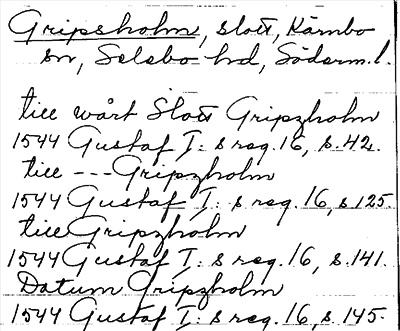 Gripsholm, slott, Kärnbo
sn, Selebo hd, Söderm.l.
till wårt Slott Gripzholm
1544 Gustaf I: s reg. 16, s. 42.
till --- Gripzholm
1544 Gustaf I: s reg. 16, s. 125.
till Gripzholm
1544 Gustaf I: s reg. 16, s. 141.
Datum Gripzholm
1544 Gustaf I: s reg. 16, s. 145.